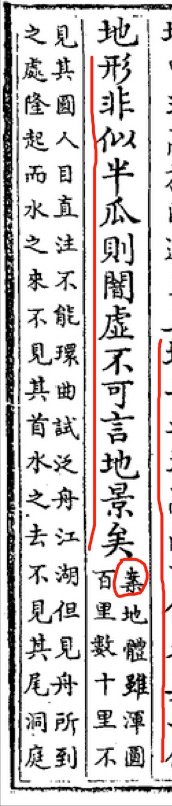 地形非似半瓜則闇虛不可言地景矣
案地體雖渾圓
百里數十里不
見其圓人目直注不能環曲試泛舟江湖但見舟所到
之處隆起而水之來不見其首水之去不見其尾洞庭